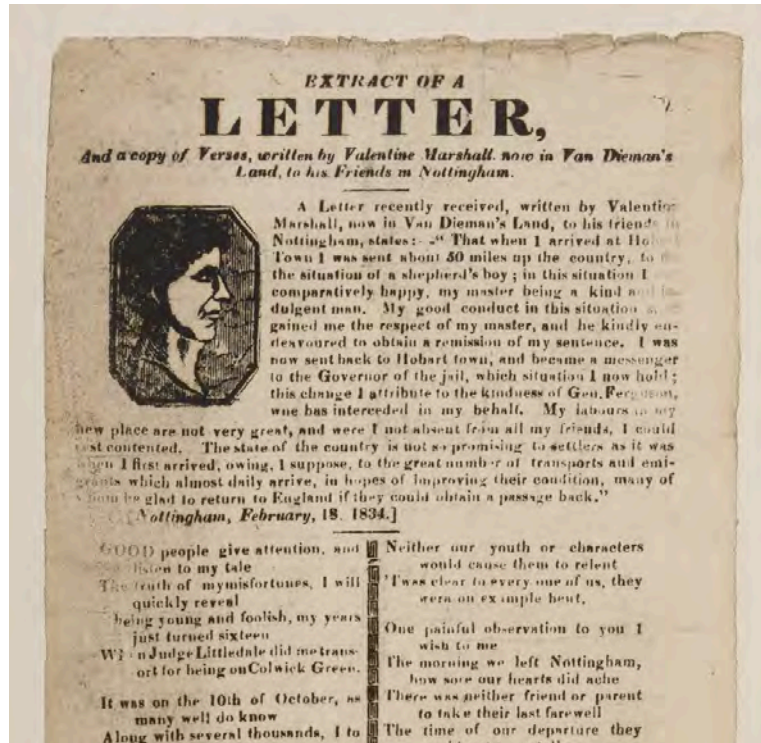 EXTRACT OF A
LETTER,
And a copy of Verses, written by Valentine Marshall. now in Van Dieman's
Land, to his Friends in Nottingham.
A Letter recently received, written by Valentine
Marshall, now in Van Dieman's Land, to his friends in
Nottingham, states:--“ That when I arrived at Hobart
Town I was sent about 50 miles up the country, to
the situation of a shepherd's boy ; in this situation I
comparatively happy, my master being a kind and in-
dulgent man. My good conduct in this situation
gained me the respect of my master, and he kindly en-
deavoured to obtain a remission of my sentence. I was
now sent back to Hobart town, and became a messenger
to the Governor of the jail, which situation I now hold ;
this change I attribute to the kindness of Gen. Ferguson,
wne has interceded in my behalf. My labours in my
new place are not very great, and were I not absent from all my friends, I could
rest contented. The state of the country is not so promising to settlers as it was
when I first arrived, owing, I suppose, to the great number of transports and emi-
grants which almost daily arrive, in hopes of improving their condition, many of
whom be glad to return to England if they could obtain a passage back.”
[Nottingham, February, 18. 1834.]
GOOD people give attention, and
listen to my tale
The truth of mymisfortunes, I will
quickly reveal
being young and foolish, my years
just turned sixteen
When Judge Littledale did me trans-
ort for being on Colwick Green.
It was on the 10th of October, as
many well do know
Along with several thousands, I to
Neither our youth or characters
would cause them to relent
'Twas clear to every one of us, they
were on example bent.
One painful observation to you I
wish to me
The morning we left Nottingham,
how sore our hearts did ache
There was neither friend or parent
to take their last farewell
The time of our departure they